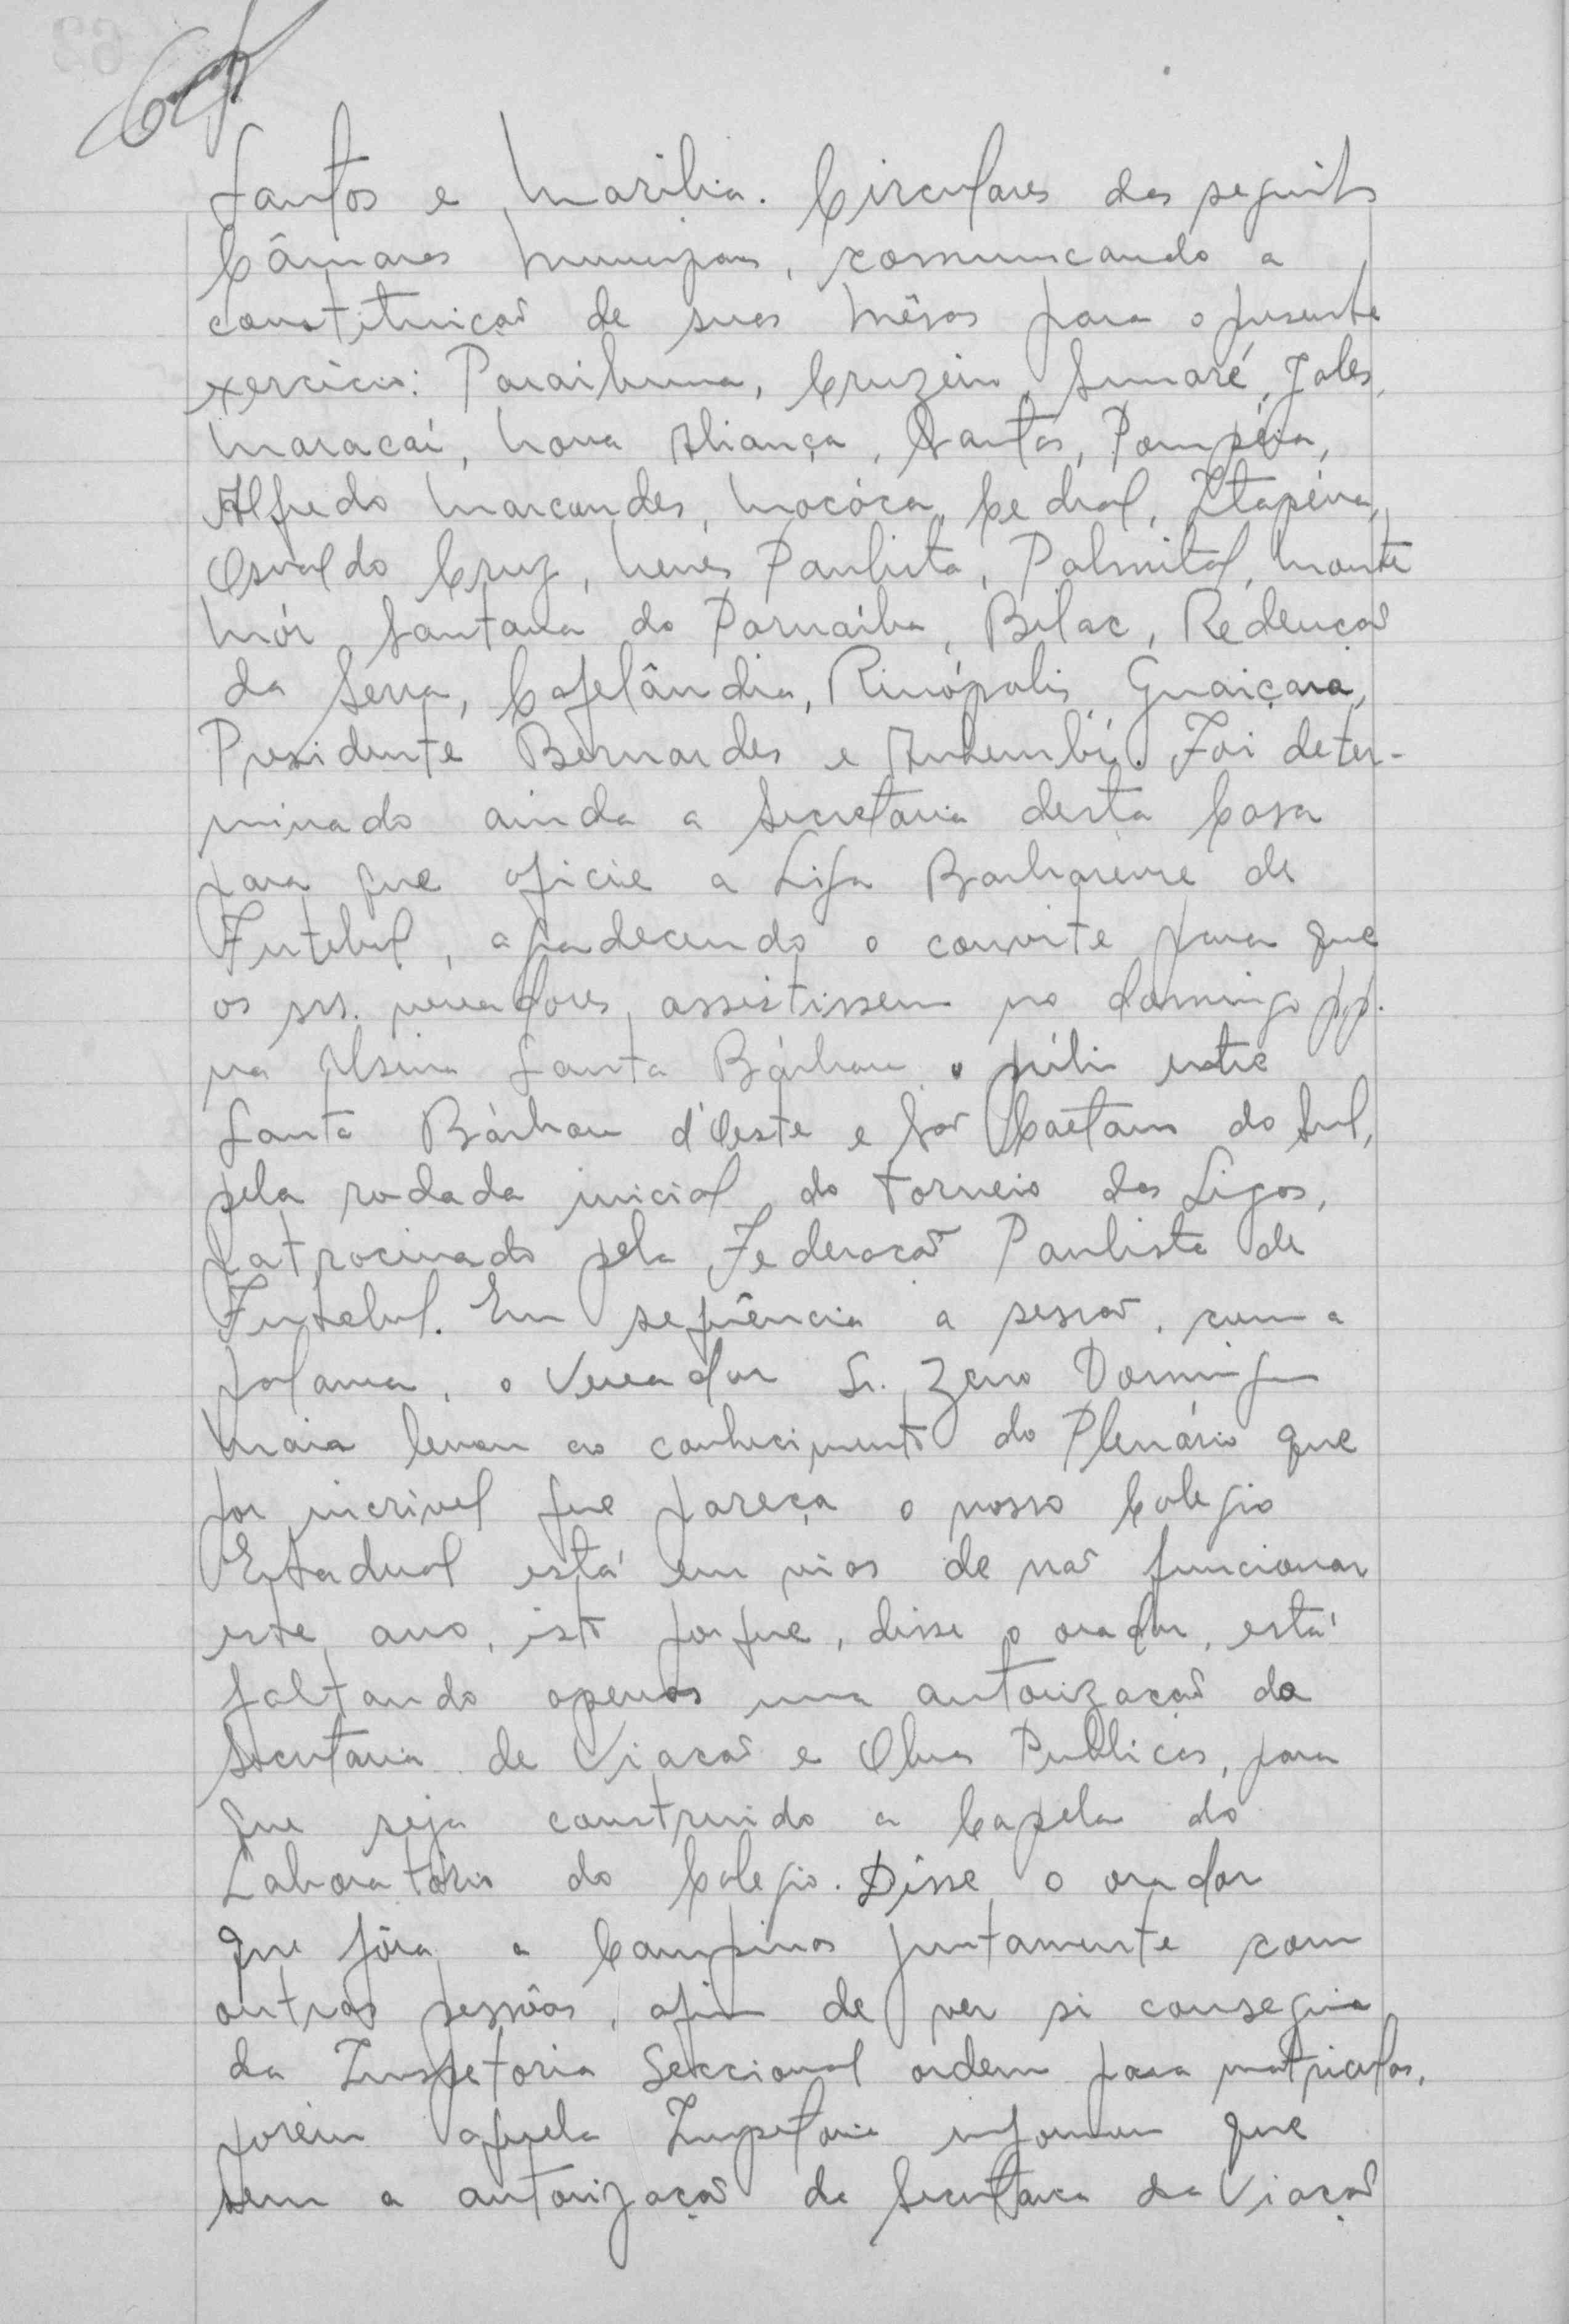 Santos e Marilia. Circulares das seguints
Câmaras Municipais, comunicando a
constituição de suas mêsas para o presente
exercício: Paraibuna, Cruzeiro, Sumaré, Jales,
Maracaí, Nova Aliança, Santos, Pompéia,
Alfredo Marcondes, Mocóca, Cedral, Itapéva,
Osvaldo Cruz, Neves Paulista, Palmital, Monte
Mór, Santana do Parnaíba, Bilac, Redenção
da Serra, Cafelândia, Rinópolis, Guaiçara,
Presidente Bernardes e Anhembí. Foi deter-
minado ainda a Secretaria desta Casa
para que oficie a Liga Barbarense de
Futebol, agradecendo o convite para que
os srs. vereadores assistissem no domingo p.p.
na Usina Santa Bárbara o prélio entre
Santa Bárbara d'Oeste e São Caetano do Sul,
pela rodada inicial do torneio das Ligas,
patrocinado pela Federação Paulista de
Futebol. Em seqüência a sessão, com a
palavra, o Vereador Sr. Zeno Domingues
Maia levou ao conhecimento do Plenário que
por incrivel que pareça o nosso Colegio
Estadual está em vias de não funcionar
este ano, isto porque, disse o orador, está
faltando apenas uma autorização da
Secretaria de Viação e Obras Publicas, para
que seja construido a Capela do
Laboratório do Colegio. Disse o orador
que fôra a Campinas juntamente com
outras pessôas, afim de ver si conseguia
da Inspetoria Seccional ordem para matriculas,
porém aquela Inspetoria informou que
sem a autorização da Secretaria da Viação